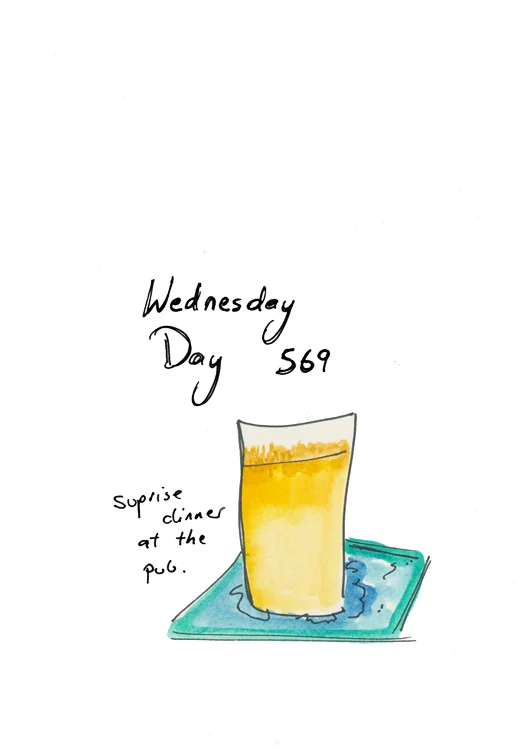 Wednesday
Day 569
suprise
dinner
at the
pub.